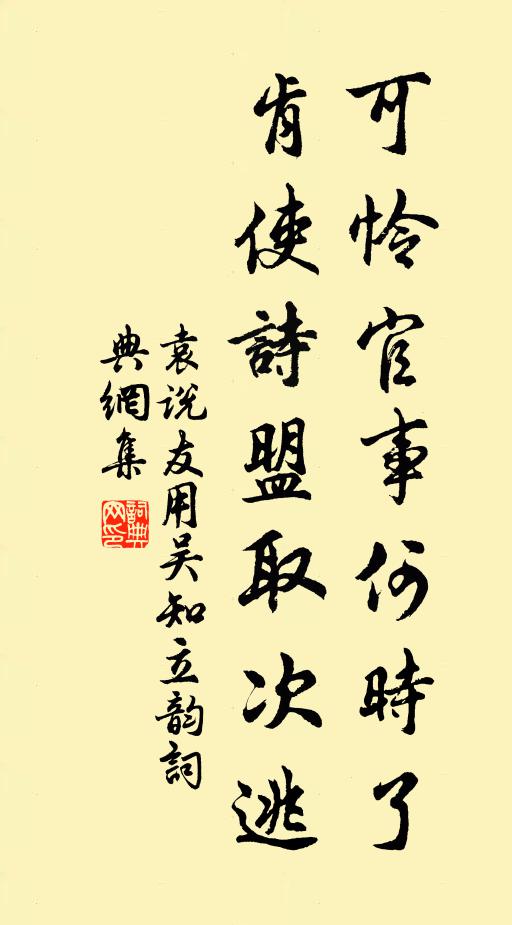 可憐官事何時了
肯使詩盟取次逃
袁说友用吴知立韵詞
典網集
詞典
网印